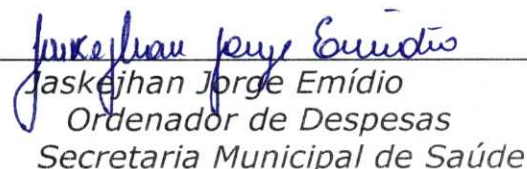 Jaskejhan Jorge Emídio
Jaskejhan Jorge Emídio
Ordenador de Despesas
Secretaria Municipal de Saúde